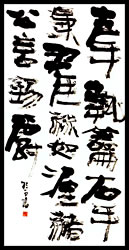 左手執籥右手
秉翟赫如渥赭
公言錫爵